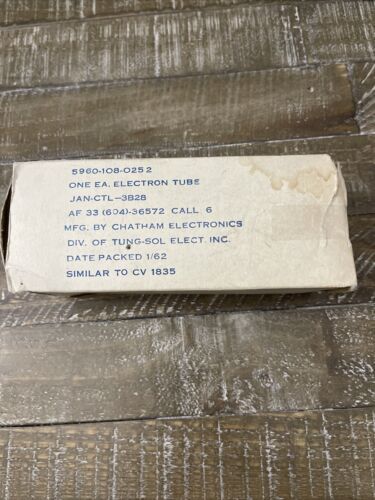 5960-108-0252
ONE EA. ELECTRON TUBE
JAN-CTL-3B28
AF 33 (604)-36572 CALL 6
MFG. BY CHATHAM ELECTRONICS
DIV. OF TUNG-SOL ELECT. INC.
DATE PACKED 1/62
SIMILAR TO CV 1835